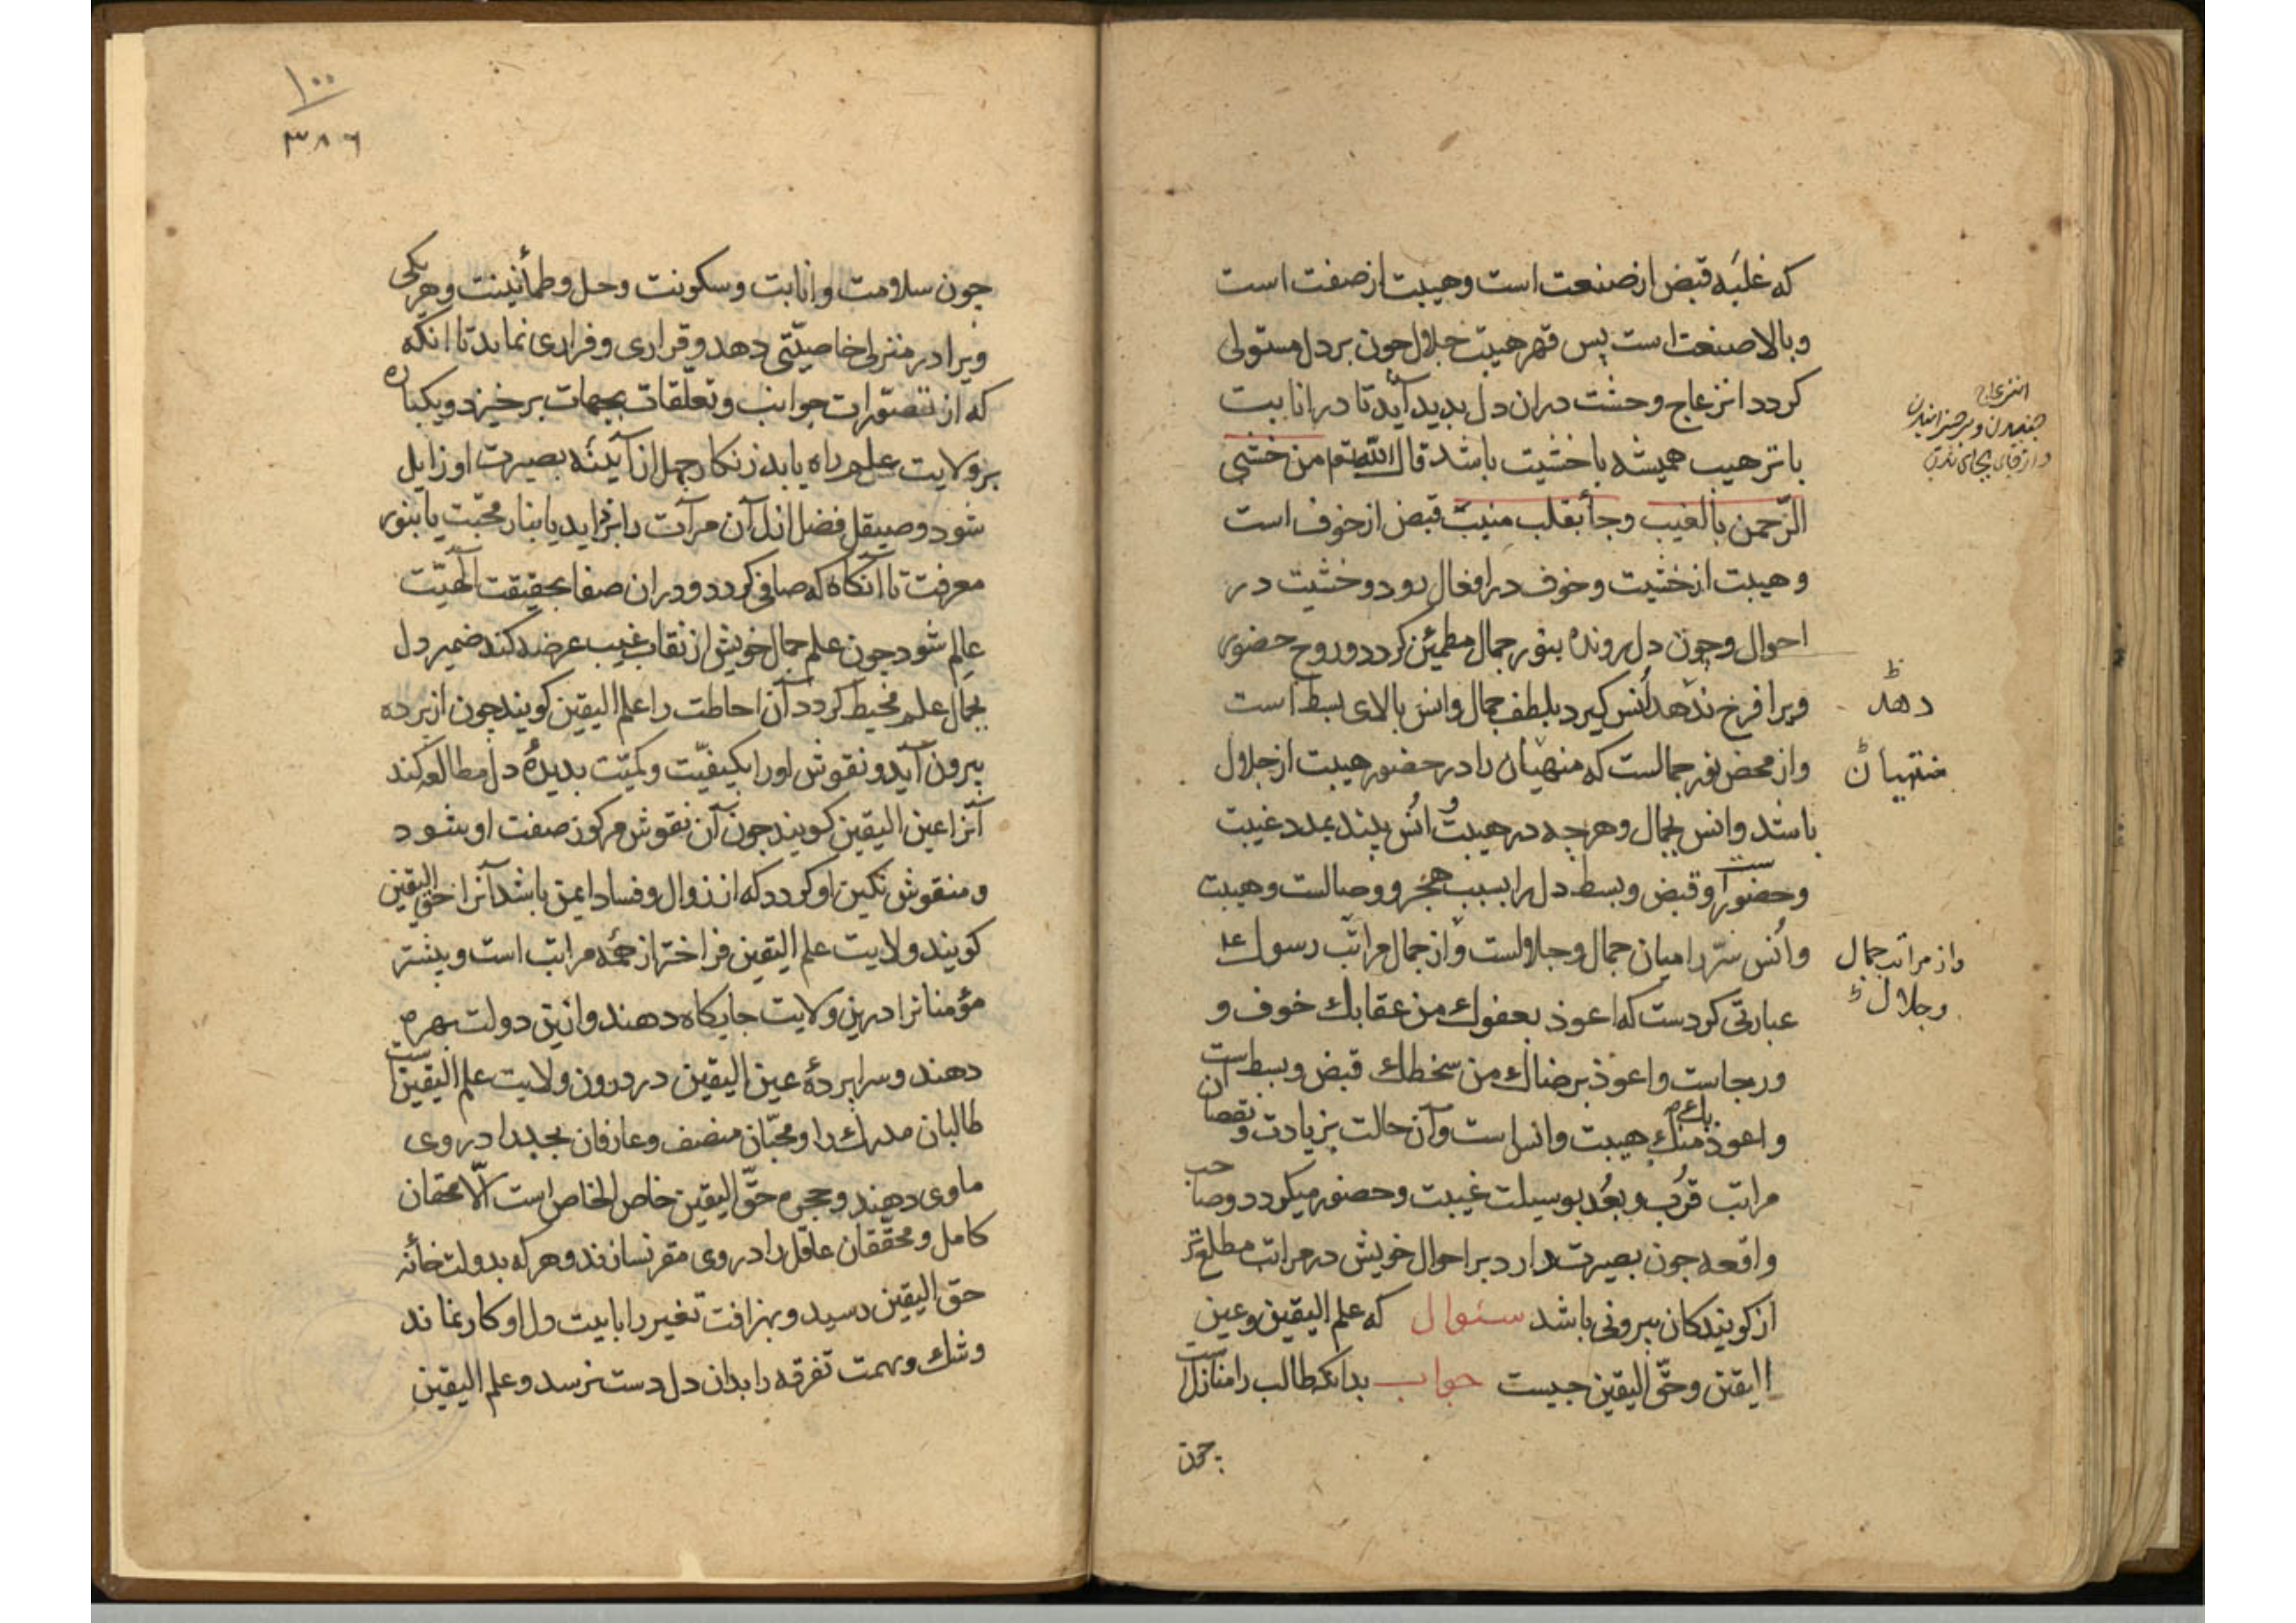 که غلبه قبض از صنعت است وهیبت از صفت است
وبالا صنعت است پس قهر هیبت جلال جون بر دل مستولی
کردد انزعاج وحشت دران دل بدید آید تا در انابیت
با ترهیب همیشه با خشیت باشد قال الله تع من خشی
الرّحمن بالغیب وجأ بقلب منیب قبض از خوف است
وهیبت از خشیت وخوف در افعال رود وخشیت در
احوال وچون دل رونده بنور جمال مطمئن کردد وروح حضوری
ویرا فرخ ندهد أنس کیرد بلطف جمال وانس بالای بسط است
واز محض نور جمالست که منهیان را در حضور هیبت از جلال
باشد وانس بجمال وهرچه در هیبت وأنس بیند بمدد غیبت
وحضور است وقبض وبسط دل را بسبب هجر ووصالست وهیبت
وأنس سرّ را میان جمال وجلالست واز جمال مراتب رسول عل
عبارتی کردست که اعوذ بعفوك من عقابك خوف و
ورجاست واعوذ برضاك من سخطك قبض وبسط است
واعوذ بك منك هیبت وانس است وآن حالت بزیادت ونقصان ان
مراتب قرُب وبعُد بوسیلت غیبت وحضور میکردد وصاحب
واقعه جون بصیرت دارد بر احوال خویش در مراتب مطلع تر
از کویندکان بیرونی باشد سئوال که علم الیقین وعین
الیقین وحقّ الیقین جیست جواب بدانکه طالب را منازل است
چون
انزعاج
دهد ظ
منتهیان
واز مراتب جمال
وجلال
۱۰۰
۳۸۶
جون سلامت وانابت وسکونت وحل وطمأنینت وهر یکی
ویرا در منزلی خاصیّتی دهد وقراری وفراری نماید تا انکه
که از تصوّرات جوانب وتعلّقات بجهات بر خیزد ویکباره
بر ولایت علم راه یابد زنکار جهل از آیینه بصیرت او زایل
شود وصیقل فضل ازل آن مرآت را بزداید یا بنار محبّت یا بنور
معرفت تا آنکاه که صافی کردد ودران صفا بحقیقت الهیّت
عالم شود جون علم جمال خویش از نقاب غیب عرضه کند ضمیر دل
بجمال علم محیط کردد آن احاطت را علم الیقین کویند جون از برده
بیرون آید ونقوش اورا بکیفیّت وکمیّت بدیدۀ دل مطالعه کند
آنرا عین الیقین کویند جون آن نقوش مرکوز صفت او شود
ومنقوش نکین او کردد که از زوال وفساد ایمن باشد آنرا حق الیقین
کویند ولایت علم الیقین فراختر از همه مراتب است وبیشتر
مؤمنانرا درین ولایت جایکاه دهند وازین دولت بهره
دهند وسرابردۀ عین الیقین در درون ولایت علم الیقین است
طالبان مدرك را ومحبّان منصف وعارفان بجد را در وی
ماوی دهند وحجره حقّ الیقین خاص الخاص است الّا محقان
کامل ومحقّقان عاقل را در وی مقر نسازند وهر که بدولت خانه
حق الیقین رسید وبهر آفت تغیر را با بیت دل او کار نماند
وشك وتهمت تفرقه را بدان دل دست نرسد وعلم الیقین